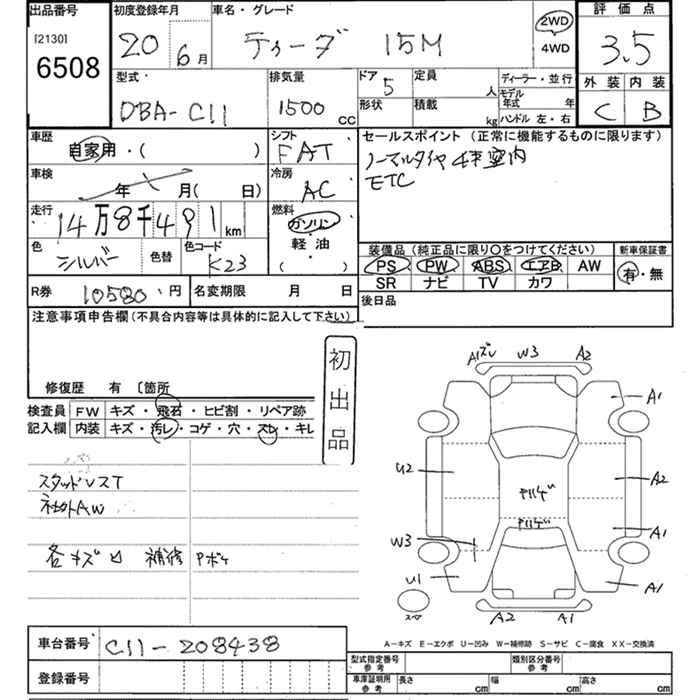 出品番号
[2130]
6508
初度登録年月
20 6月
車名・グレード
ティーダ 15M
2WD
4WD
評価点
3.5
外装 内装
C B
型式
DBA-C11
排気量
1500 CC
ドア 5
定員 人
形状
積載 kg
ディーラー・並行
モデル年式 年
ハンドル 左・右
車歴
自家用・( )
シフト
FAT
セールスポイント (正常に機能するものに限ります)
ノーマルタイヤ4本室内
ETC
車検
年 月(日)
冷房
AC
走行
14万8千491km
燃料
ガソリン
軽・油
( )
色
シルバー
色替
色コード
K23
装備品 (純正品に限り○をつけてください)
PS PW ABS エアB AW
SR ナビ TV カワ
新車保証書
有・無
R券
10580円
名変期限 月 日
後日品
注意事項申告欄 (不具合内容等は具体的に記入して下さい)
修復歴 有 〔箇所
初出品
検査員記入欄
FW キズ・飛石・ヒビ割・リペア跡
内装 キズ・汚レ・コゲ・穴・スレ・キレ
スタッドレスT
社外AW
各キズ凹 補修 Pボケ
A1ズレ W3 A2
A1
U2
A2
Pハゲ
Pハゲ
A1
W3
U1
A1
スペア
A2 A1
A-キズ E-エクボ U-凹み W-補修跡 S-サビ C-腐食 XX-交換済
車台番号
C11-208438
登録番号
型式指定番号 参考
類別区分番号 参考
車庫証明用 参考
長さ cm
幅 cm
高さ cm